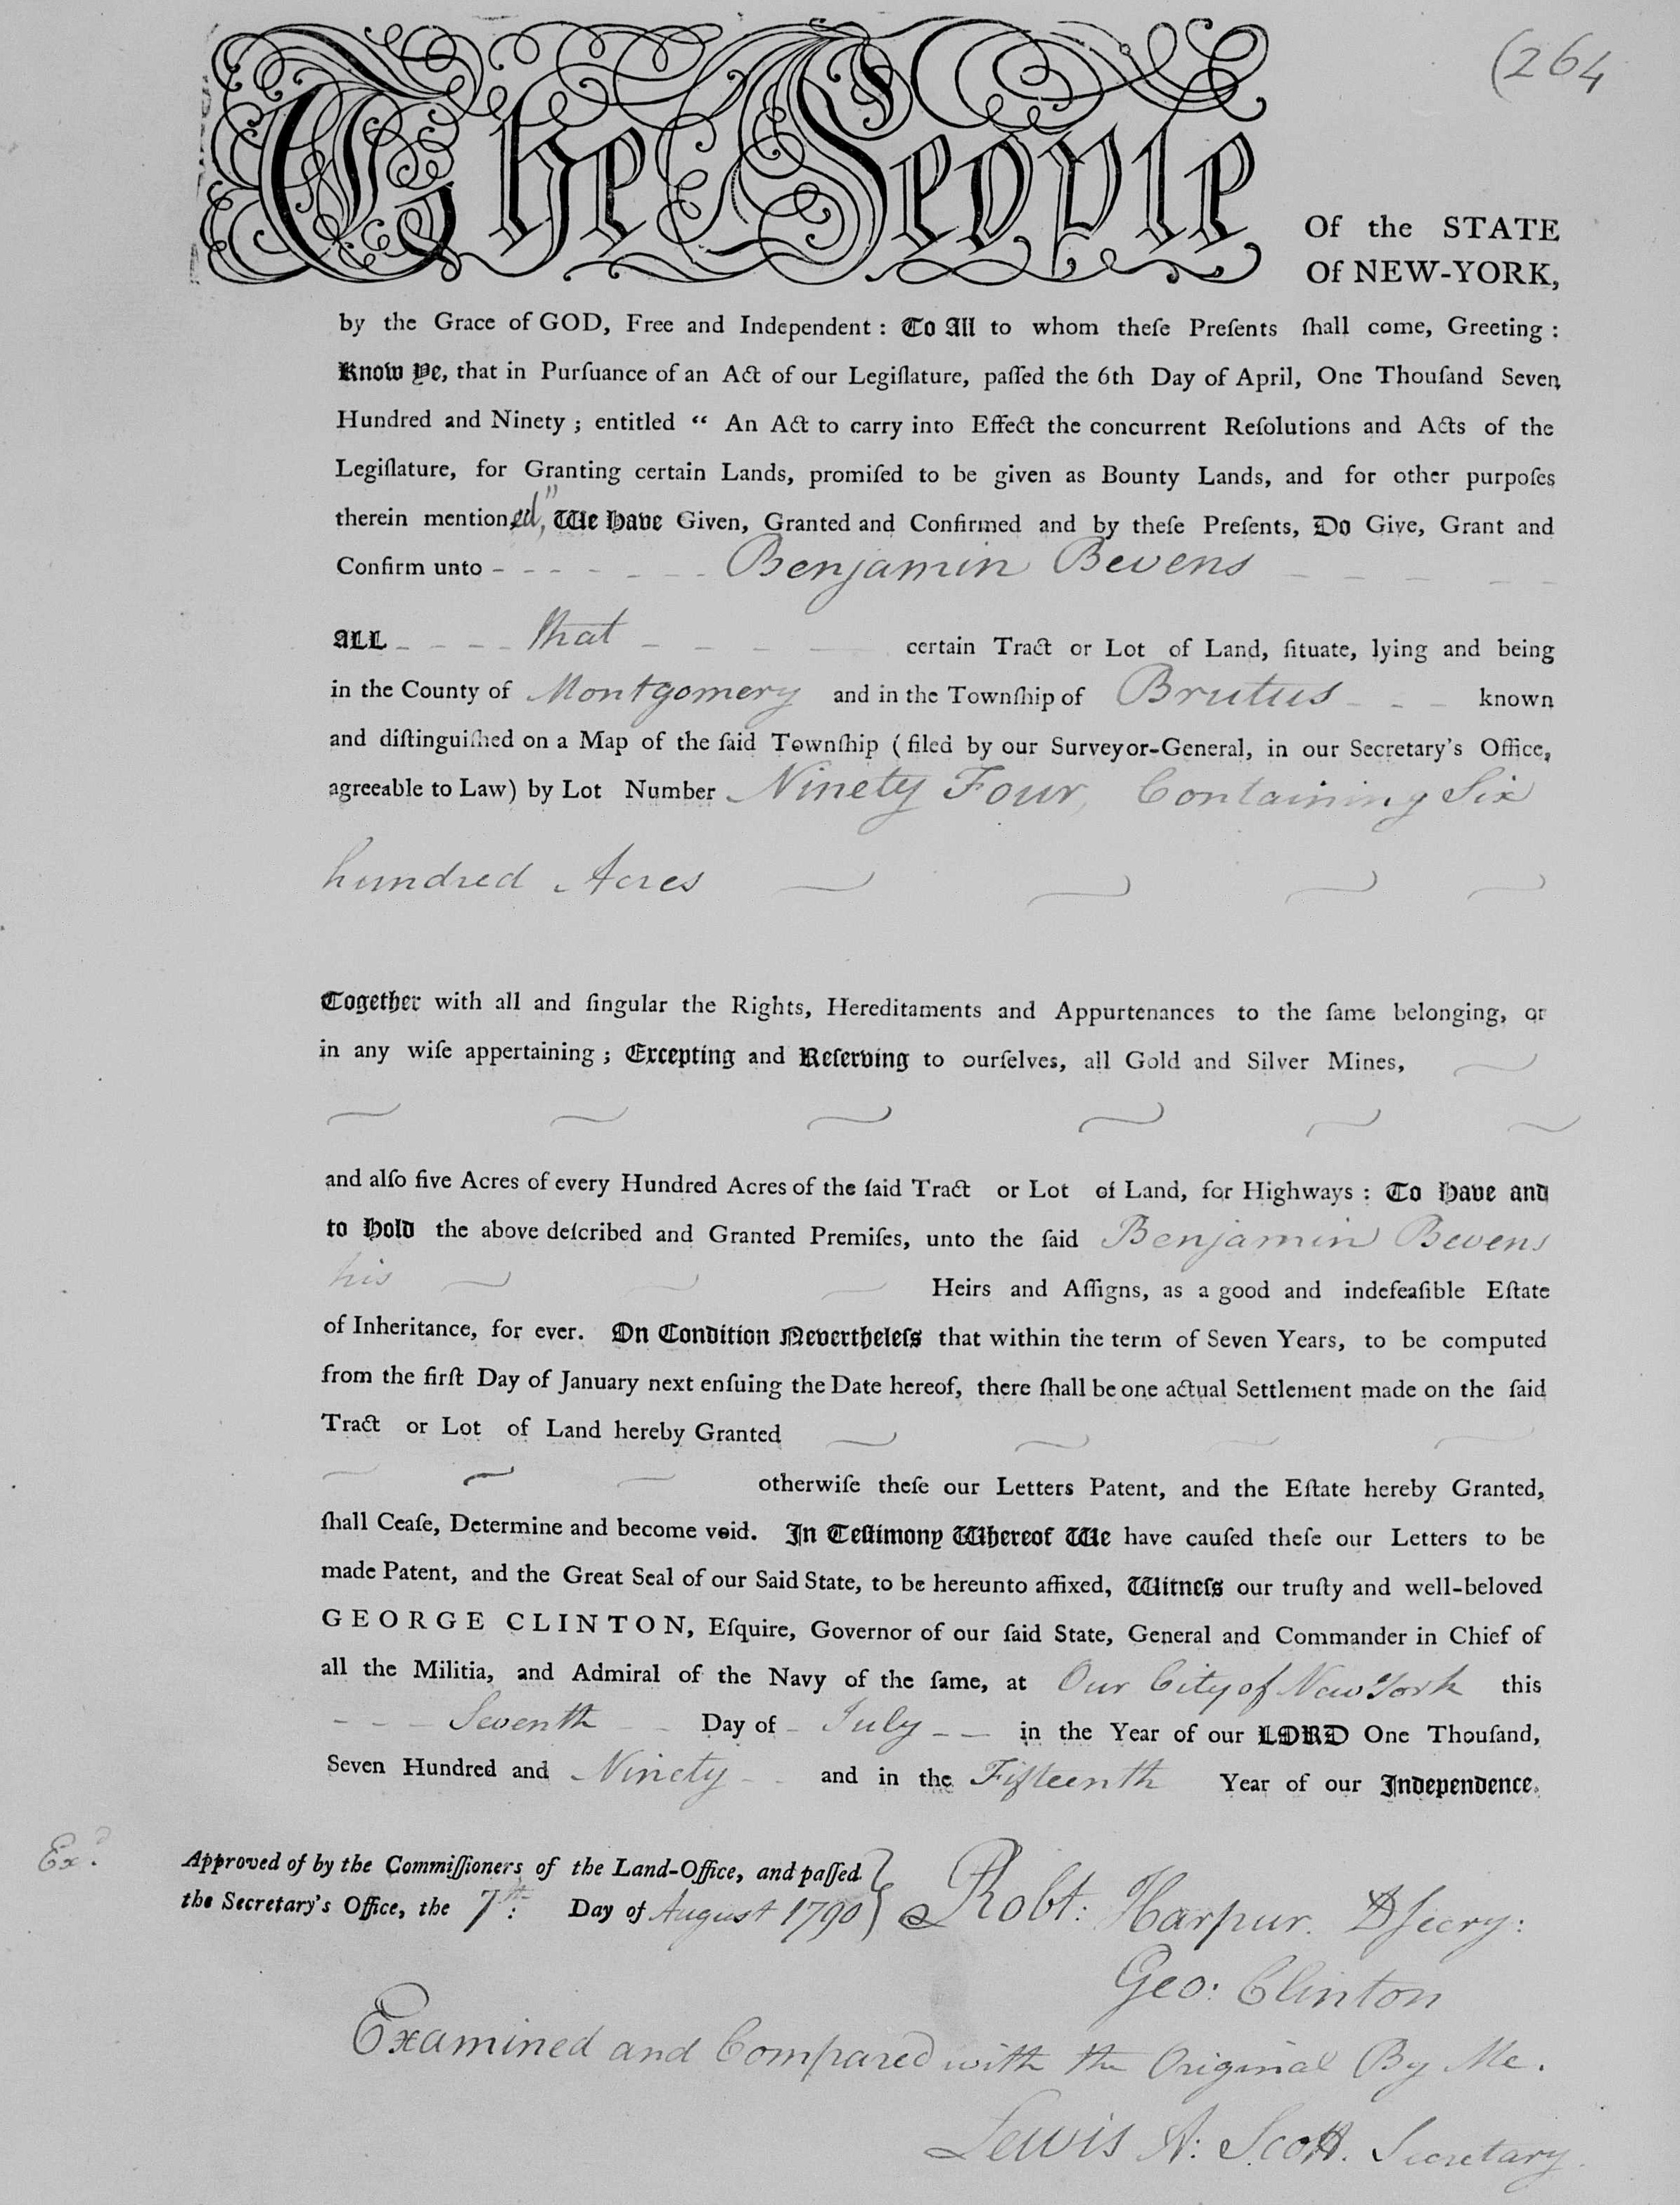 (264
The People
Of the STATE
Of NEW-YORK,
by the Grace of GOD, Free and Independent : To All to whom theſe Preſents ſhall come, Greeting :
Know Ye, that in Purſuance of an Act of our Legiſlature, paſſed the 6th Day of April, One Thouſand Seven
Hundred and Ninety ; entitled “ An Act to carry into Effect the concurrent Reſolutions and Acts of the
Legiſlature, for Granting certain Lands, promiſed to be given as Bounty Lands, and for other purpoſes
therein mentioned," We Have Given, Granted and Confirmed and by theſe Preſents, Do Give, Grant and
Confirm unto - - - - - - - Benjamin Bevens - - - - -
ALL - - - - that - - - - certain Tract or Lot of Land, ſituate, lying and being
in the County of Montgomery and in the Townſhip of Brutus - - - known
and diſtinguiſhed on a Map of the ſaid Townſhip (filed by our Surveyor-General, in our Secretary's Office,
agreeable to Law) by Lot Number Ninety Four, Containing Six
hundred Acres
Together with all and ſingular the Rights, Hereditaments and Appurtenances to the ſame belonging, or
in any wiſe appertaining ; Excepting and Reſerving to ourſelves, all Gold and Silver Mines,
and alſo five Acres of every Hundred Acres of the ſaid Tract or Lot of Land, for Highways : To Have and
to Hold the above deſcribed and Granted Premiſes, unto the ſaid Benjamin Bevens
his Heirs and Aſſigns, as a good and indefeaſible Eſtate
of Inheritance, for ever. On Condition Nevertheleſs that within the term of Seven Years, to be computed
from the firſt Day of January next enſuing the Date hereof, there ſhall be one actual Settlement made on the ſaid
Tract or Lot of Land hereby Granted
otherwiſe theſe our Letters Patent, and the Eſtate hereby Granted,
ſhall Ceaſe, Determine and become void. In Teſtimony Whereof We have cauſed theſe our Letters to be
made Patent, and the Great Seal of our Said State, to be hereunto affixed, Witneſs our truſty and well-beloved
GEORGE CLINTON, Eſquire, Governor of our ſaid State, General and Commander in Chief of
all the Militia, and Admiral of the Navy of the ſame, at Our City of New York this
- - - Seventh - - Day of - July - - in the Year of our LORD One Thouſand,
Seven Hundred and Ninety - - and in the Fifteenth Year of our Independence.
Exd. Approved of by the Commiſſioners of the Land-Office, and paſſed
the Secretary's Office, the 7th: Day of August 1790 } Robt: Harpur. DSecry:
Geo: Clinton
Examined and Compared with the Original By Me.
Lewis A: Scott. Secretary.